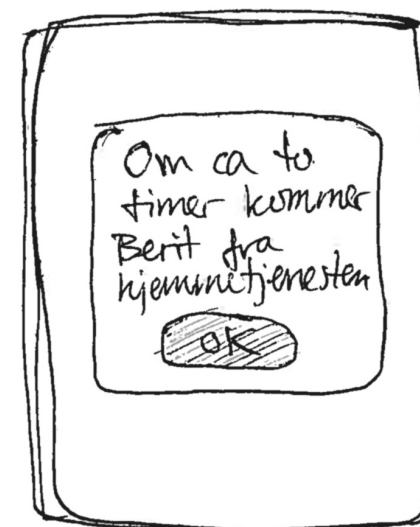 Om ca to
timer kommer
Berit fra
hjemmetjenesten
OK